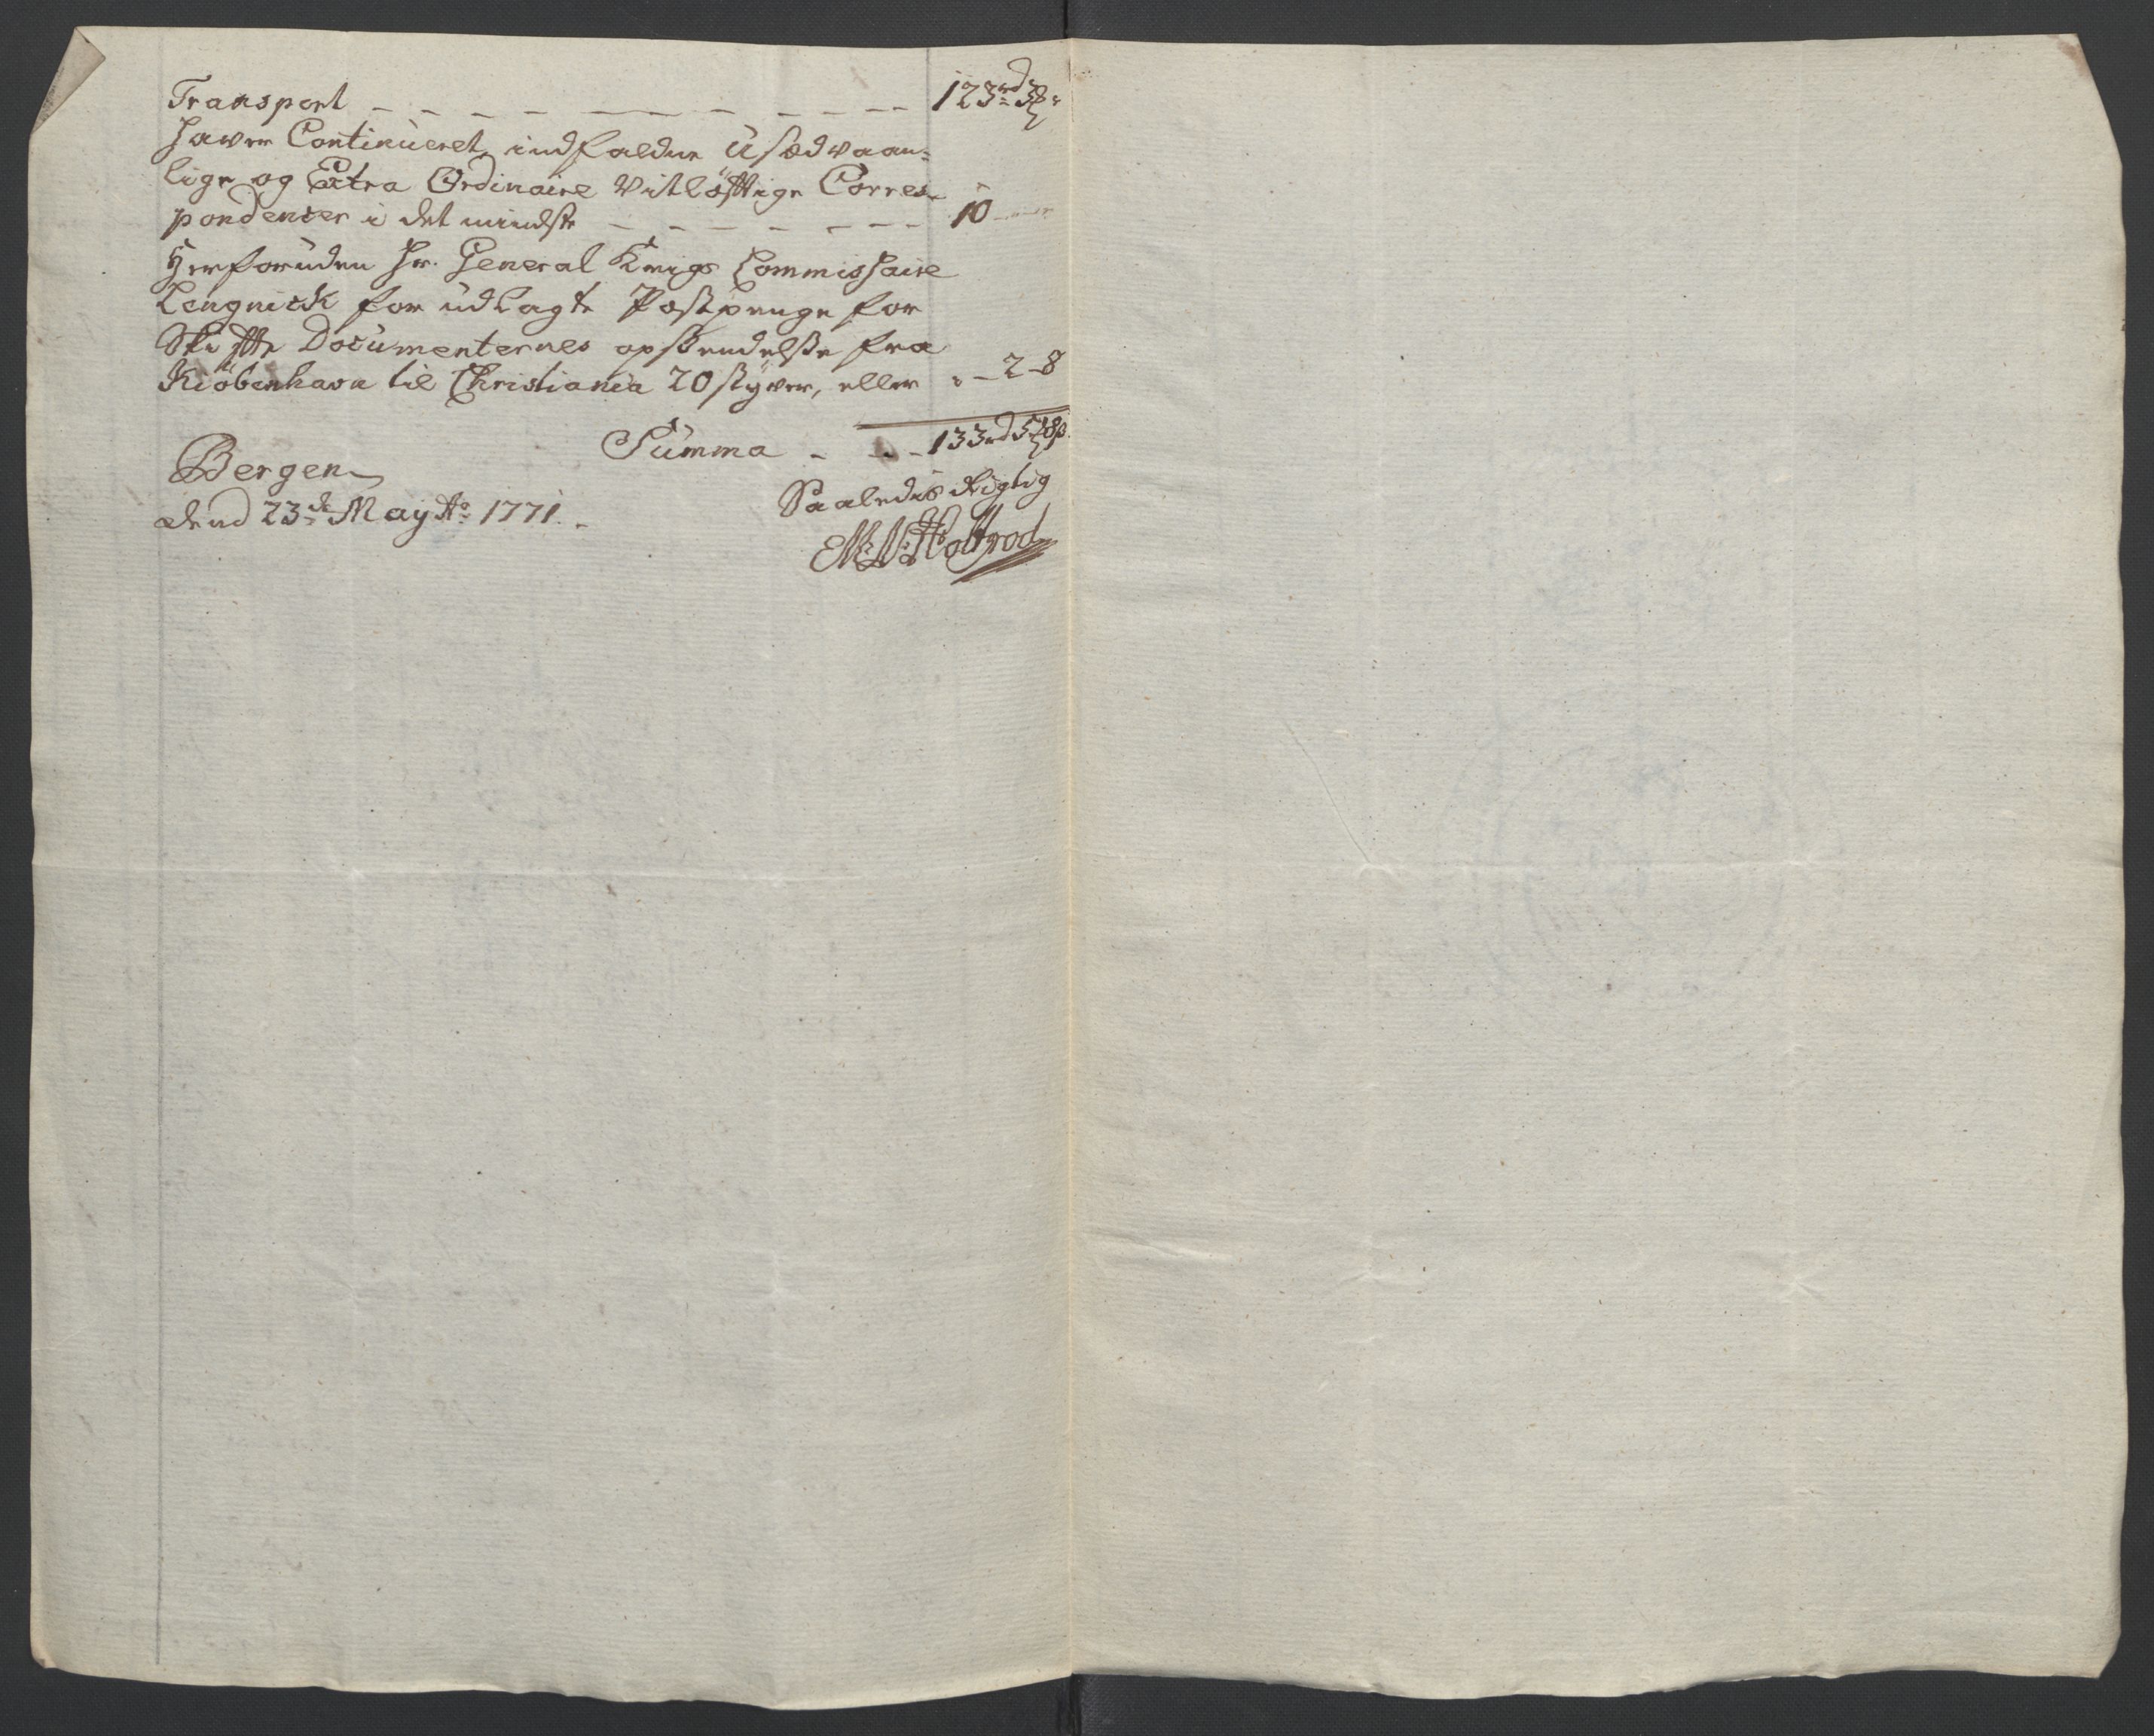 Transport - - - - - - - - - - 123rd 3ℳ "
haver Continueret, indfaldne Usædvaan-
lige og Extra Ordinaire Vitløftige Corres-
pondencer i det mindste - - - - - - - 10 - - -
Herforuden Hr. General Krigs Commissaire
Lengnick for udlagte Postpenge for
Skifte Documenternes opsendelse fra
Kiöbenhavn til Christiania 20 styver, eller " - 2 - 8
Summa - - - 133rd 5ℳ 8ß.
Bergen
dend 23de May Ao 1771. -
Saaledis Rigtig